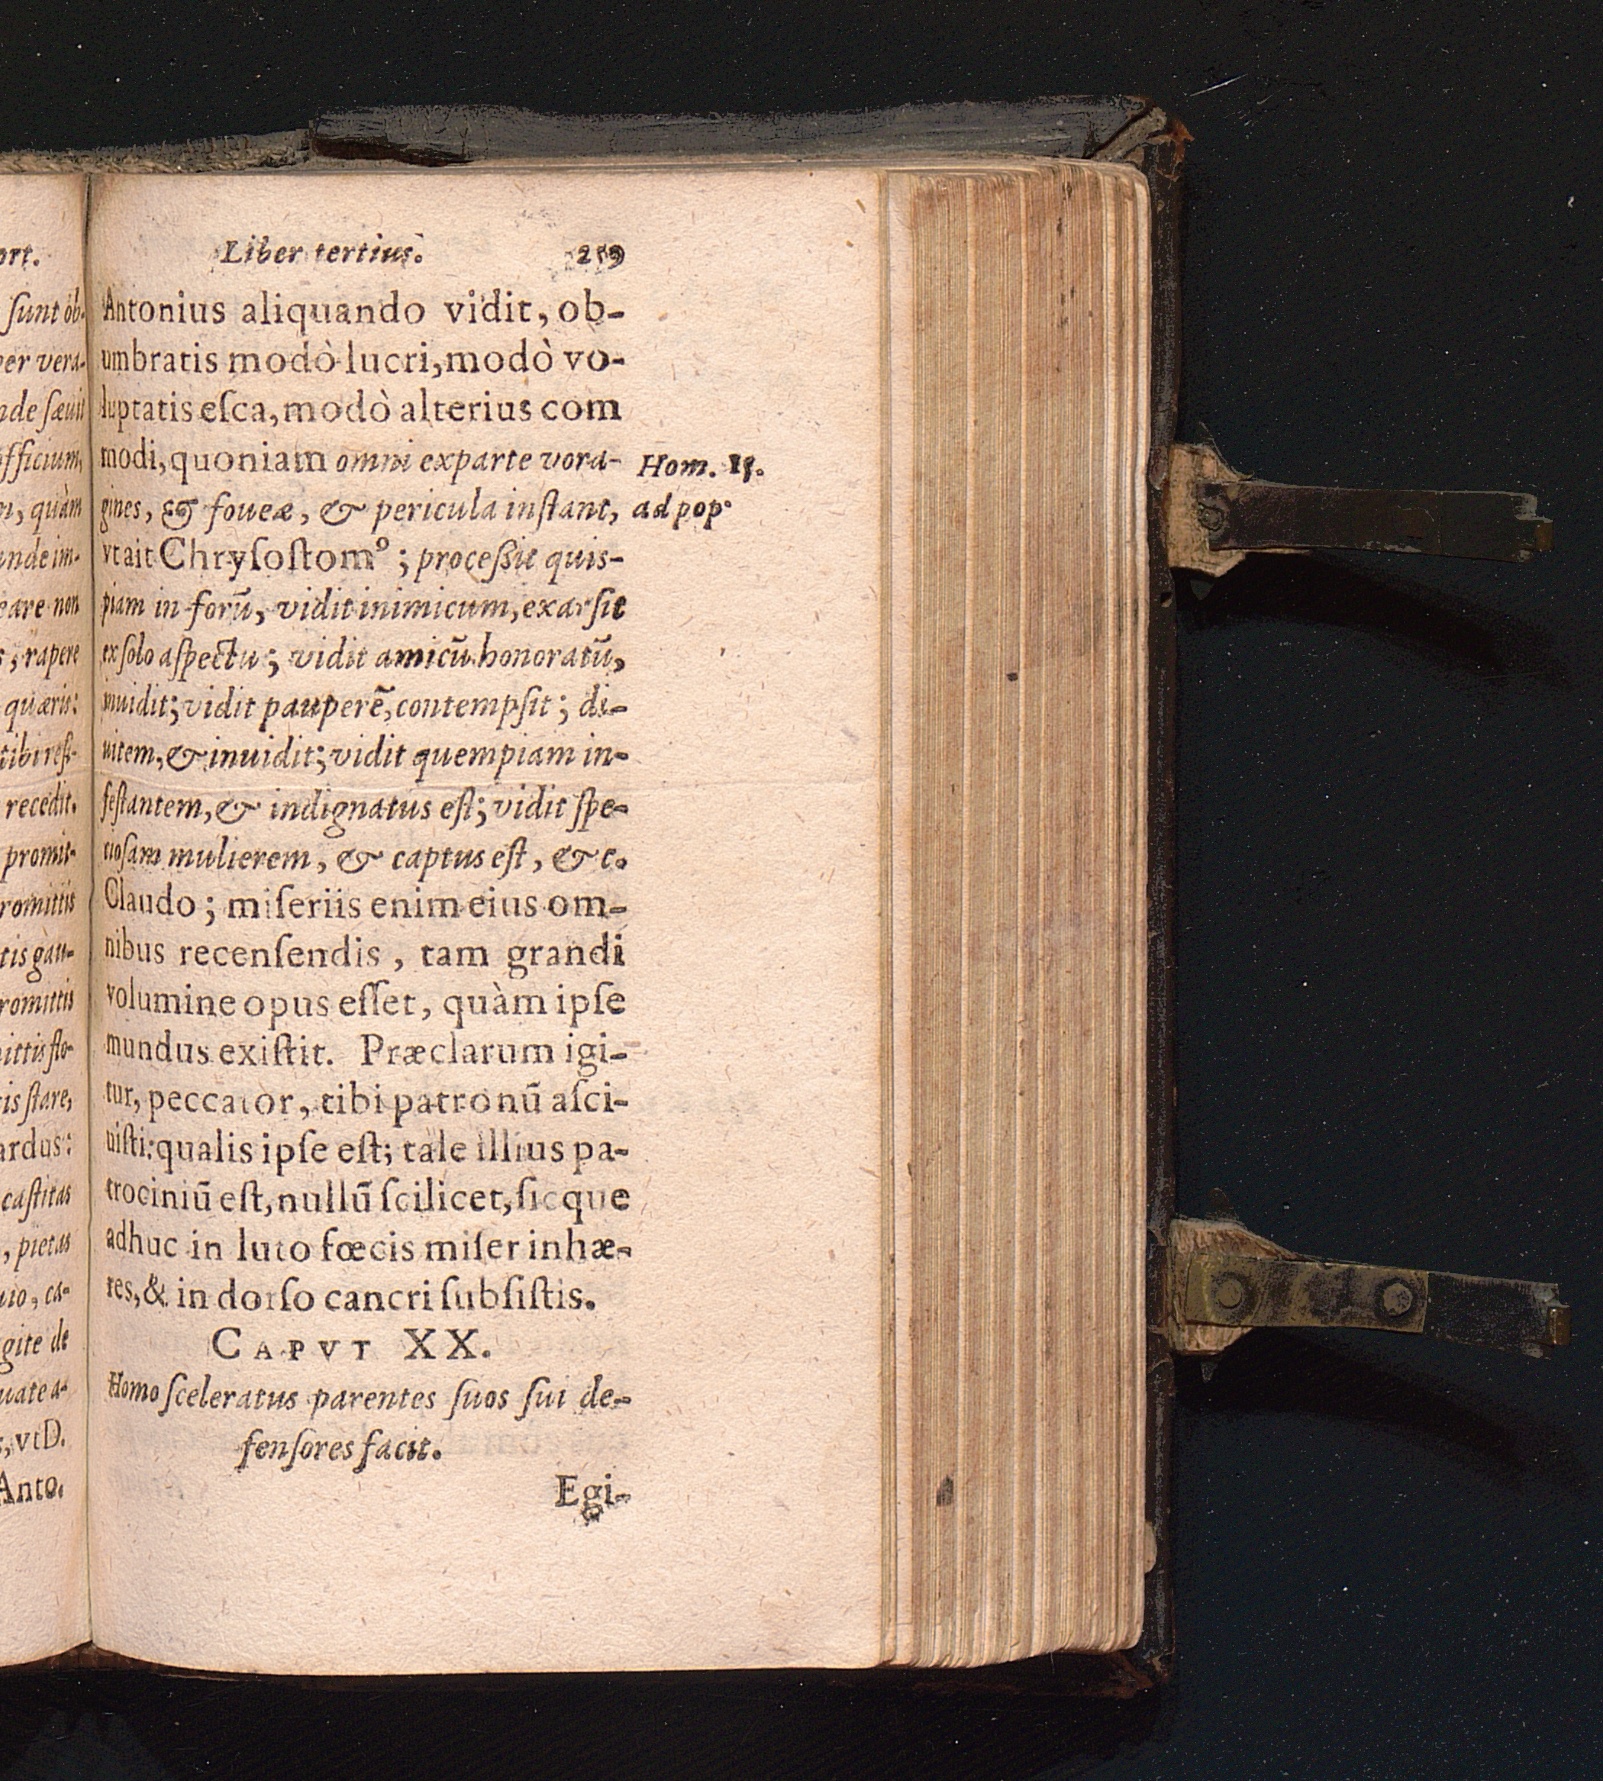 ort.
sunt ob-
per vera-
nde sæuit
officium,
m, quàm
unde im-
eare non
s, rapere
quæris:
tibi resi-
recedit.
promit-
romittis
tis gau-
romittis
mittis flo-
is stare,
ardus:
castitas
, pietas
uio, ca-
gite de
uate a-
s, vt D.
Anto.
Liber tertius. 219
Antonius aliquando vidit, ob-
umbratis modò lucri, modò vo-
luptatis eſca, modò alterius com
modi, quoniam omni ex parte vora-
gines, & foueæ, & pericula inſtant,
vt ait Chryſoſtom⁹; proceßit quis-
piam in forũ, vidit inimicum, exarſit
ex ſolo aſpectu; vidit amicũ honoratũ,
inuidit; vidit pauperẽ, contempſit; di-
uitem, & inuidit; vidit quempiam in-
feſtantem, & indignatus eſt; vidit ſpe-
cioſam mulierem, & captus eſt, & c.
Claudo; miſeriis enim eius om-
nibus recenſendis, tam grandi
volumine opus eſſet, quàm ipſe
mundus exiſtit. Præclarum igi-
tur, peccator, tibi patronũ aſci-
uiſti: qualis ipſe eſt; tale illius pa-
trociniũ eſt, nullũ ſcilicet, ſicque
adhuc in luto fœcis miſer inhæ-
res, & in dorſo cancri ſubſiſtis.
CAPVT XX.
Homo ſceleratus parentes ſuos ſui de-
fenſores facit.
Egi-
Hom. 15.
ad pop°